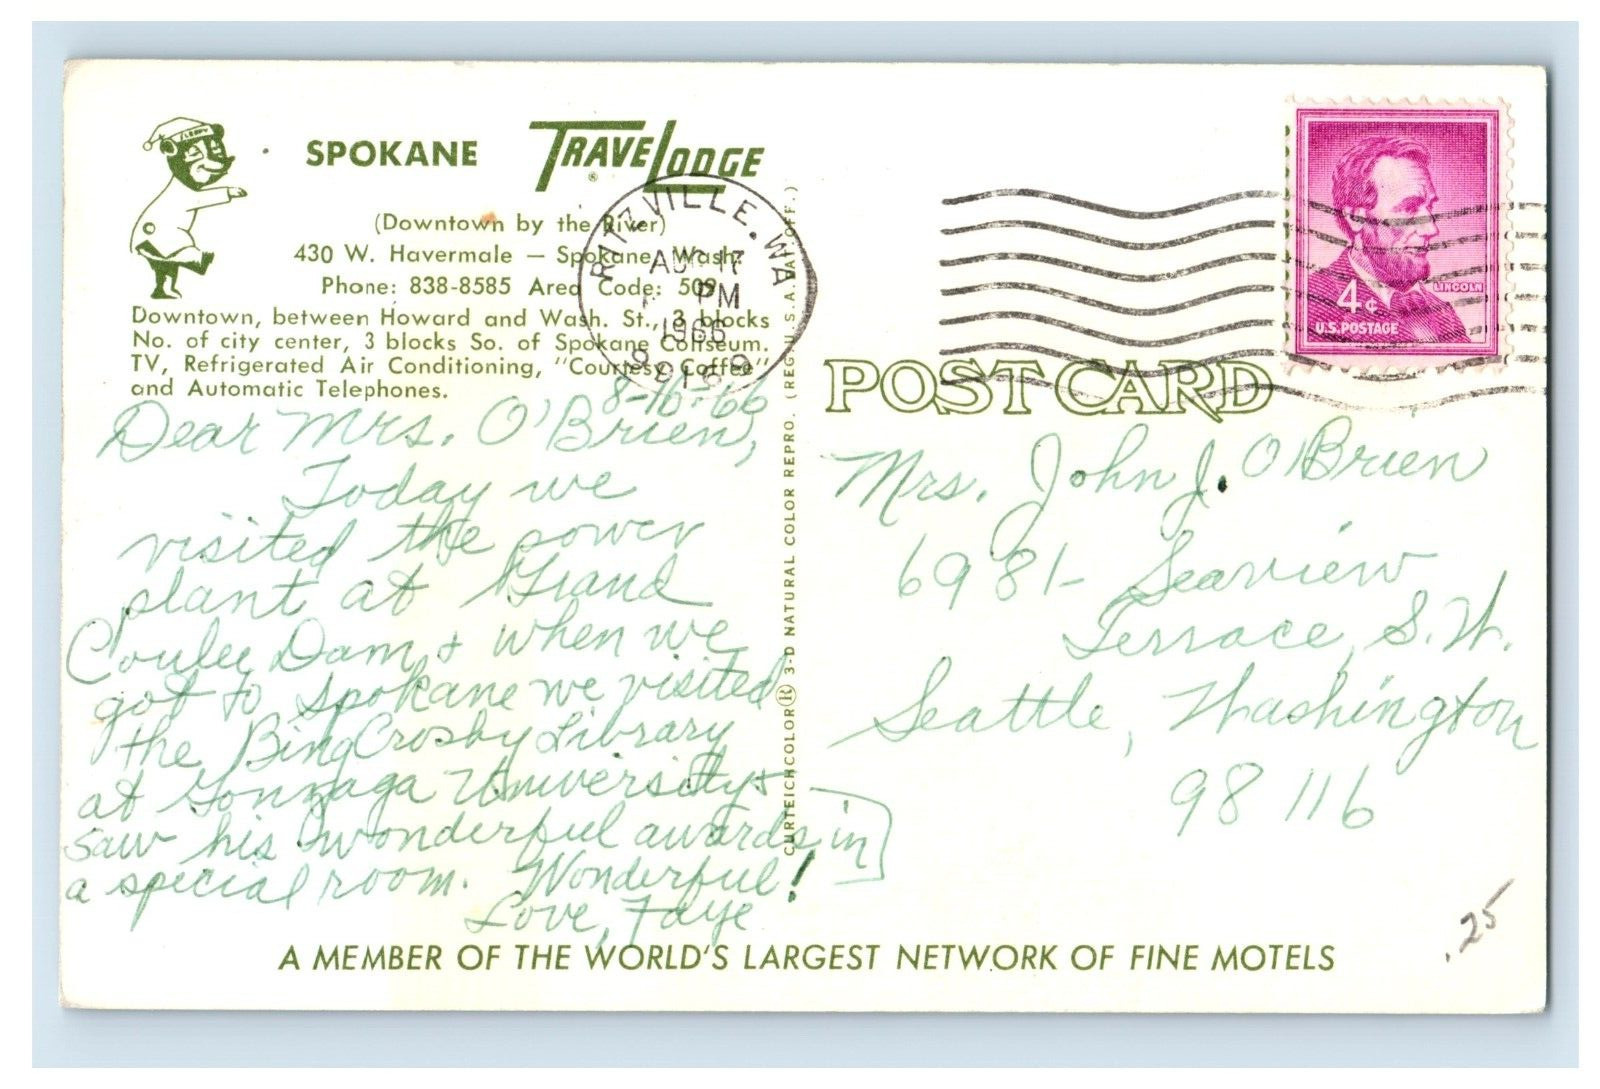 SLEEPY
SPOKANE TRAVELODGE ®
(Downtown by the River)
430 W. Havermale — Spokane, Wash.
Phone: 838-8585 Area Code: 509
Downtown, between Howard and Wash. St., 3 blocks
No. of city center, 3 blocks So. of Spokane Coliseum.
TV, Refrigerated Air Conditioning, "Courtesy Coffee"
and Automatic Telephones.
RITZVILLE, WA
AUG 17
PM
1966
99169
8-16-66
Dear Mrs. O'Brien,
Today we
visited the power
plant at Grand
Coulee Dam & when we
got to Spokane we visited
the Bing Crosby Library
at Gonzaga University &
saw his wonderful awards in
a special room. Wonderful!
Love, Faye
CURTEICHCOLOR ® 3-D NATURAL COLOR REPRO. (REG. U.S.A. PAT. OFF.)
LINCOLN
4¢
U.S. POSTAGE
POST CARD
Mrs. John J. O'Brien
6981- Seaview
Terrace, S.W.
Seattle, Washington
98116
.25
A MEMBER OF THE WORLD'S LARGEST NETWORK OF FINE MOTELS